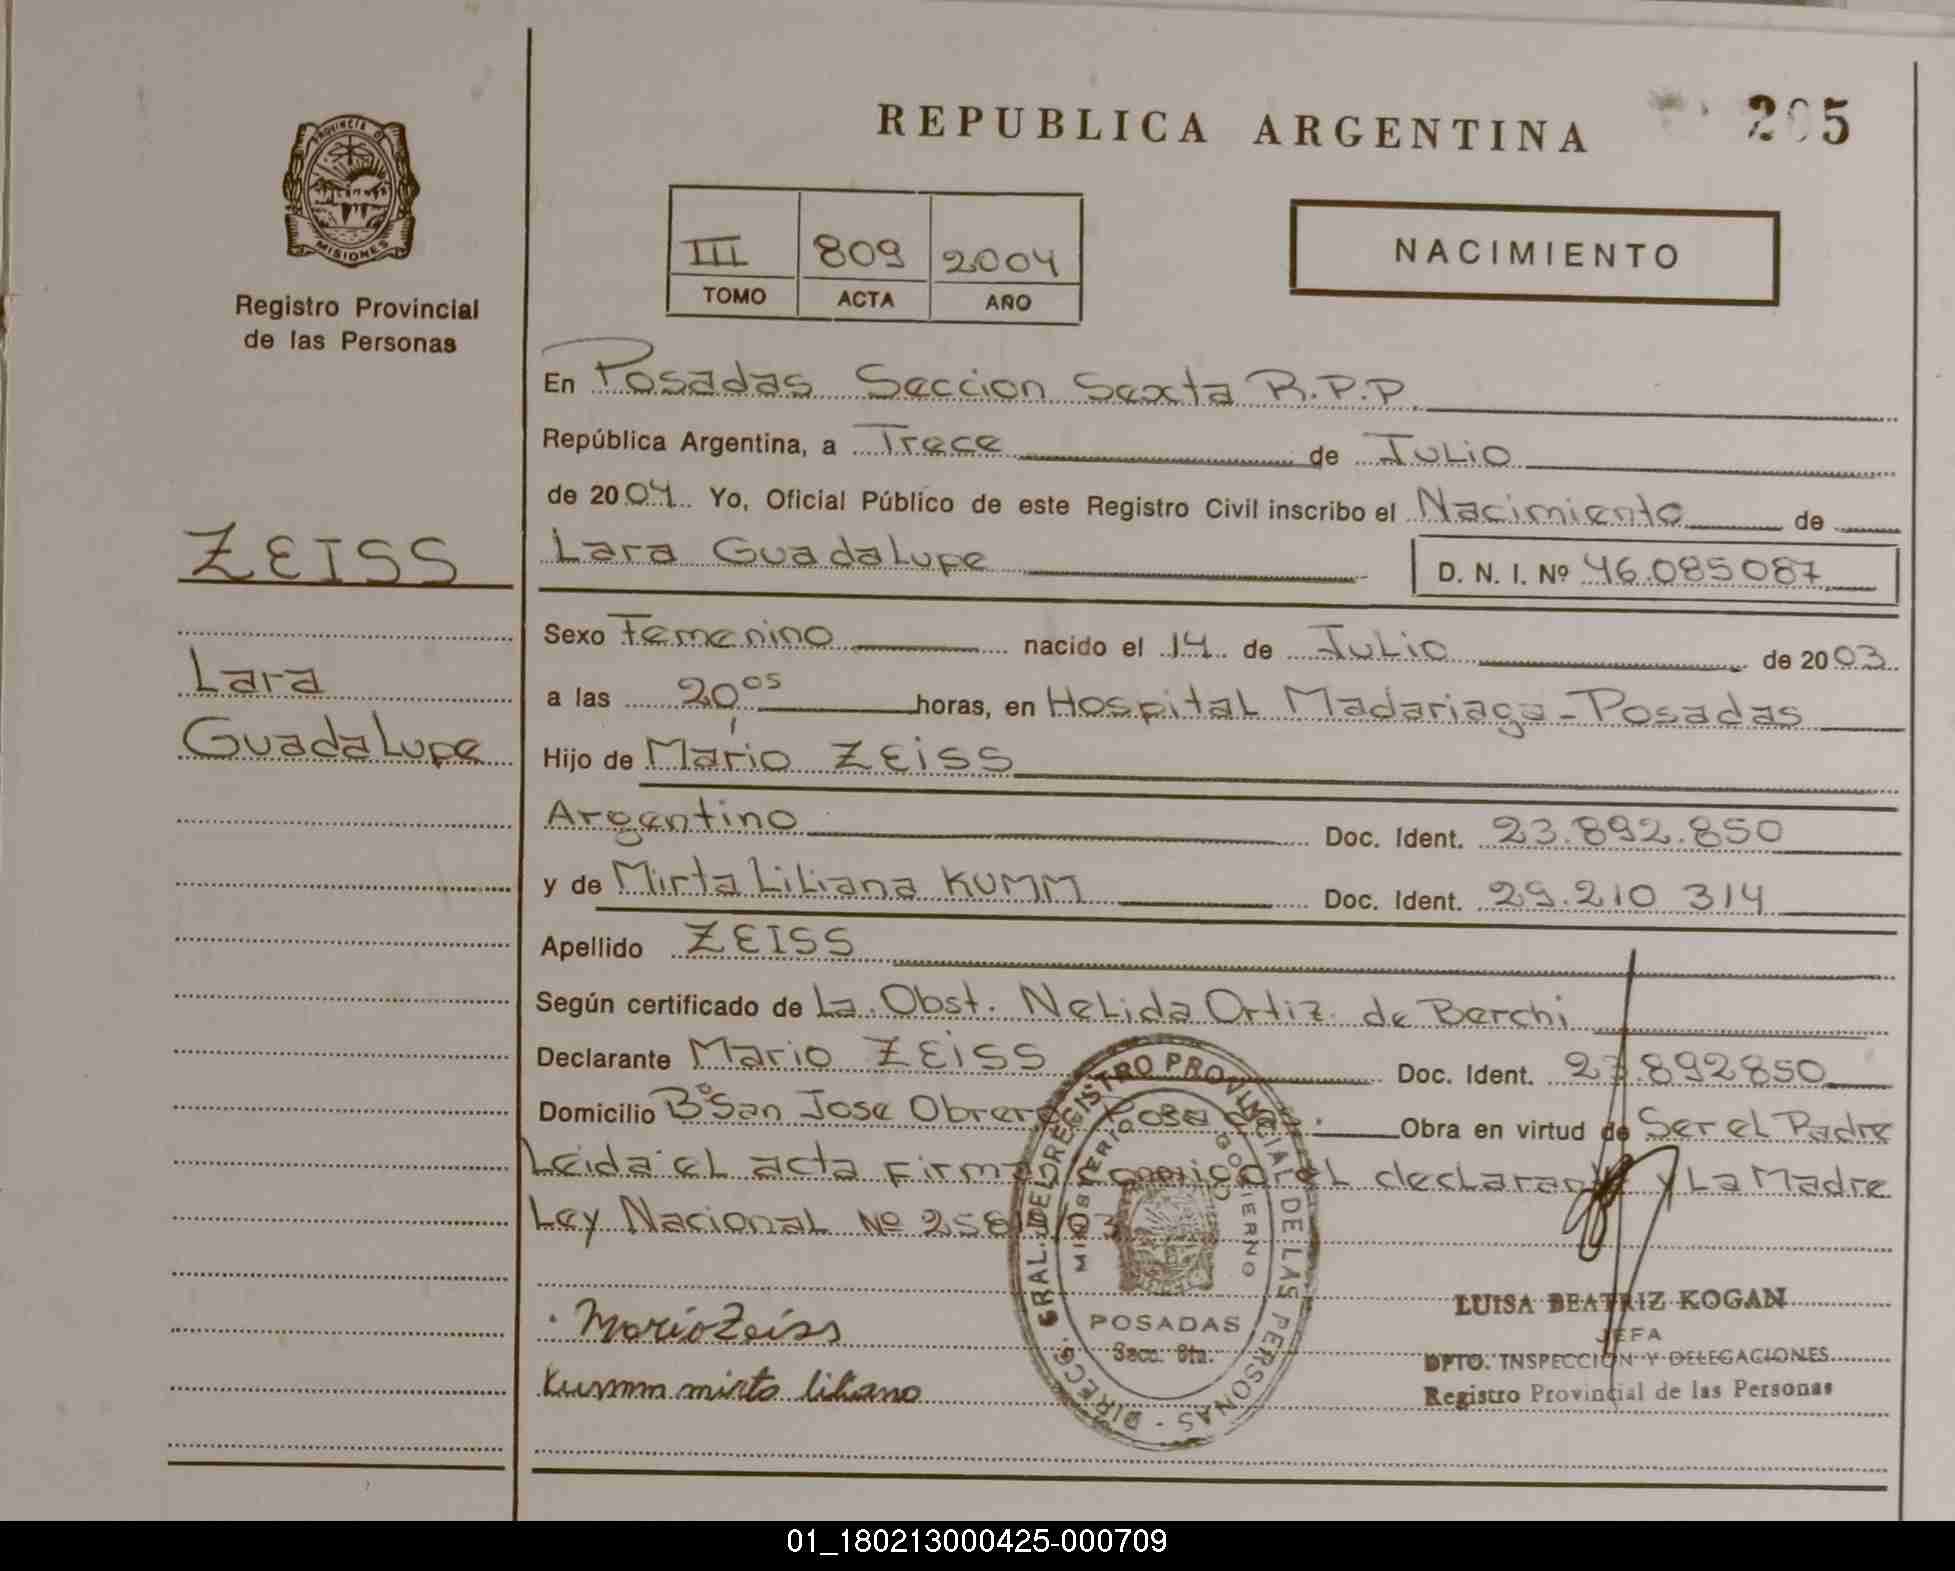 REPUBLICA ARGENTINA
2 5
PROVINCIA DE
MISIONES
Registro Provincial
de las Personas
III 809 2004
TOMO ACTA AÑO
NACIMIENTO
En Posadas Seccion Sexta R.P.P.
República Argentina, a Trece de Julio
de 2004 Yo, Oficial Público de este Registro Civil inscribo el Nacimiento de
ZEISS
Lara Guadalupe D. N. I. Nº 46.085087
Sexo Femenino nacido el 14 de Julio de 2003
Lara
a las 20,05 horas, en Hospital Madariaga - Posadas
Guadalupe
Hijo de Mario ZEISS
Argentino Doc. Ident. 23.892.850
y de Mirta Liliana KUMM Doc. Ident. 29.210 314
Apellido ZEISS
Según certificado de La. Obst. Nelida Ortiz de Berchi
Declarante Mario ZEISS Doc. Ident. 23.892850
Domicilio Bº San Jose Obrero Posadas. Obra en virtud de Ser el Padre
Leida el acta firma conmigo el declarante y La Madre
Ley Nacional Nº 258 /03
Mario Zeiss
Kumm mirta liliana
DIRECC. GRAL. DEL REGISTRO PROVINCIAL DE LAS PERSONAS
MINISTERIO GOBIERNO
POSADAS
Secc. 6ta.
LUISA BEATRIZ KOGAN
JEFA
DPTO. INSPECCION Y DELEGACIONES
Registro Provincial de las Personas
01_180213000425-000709